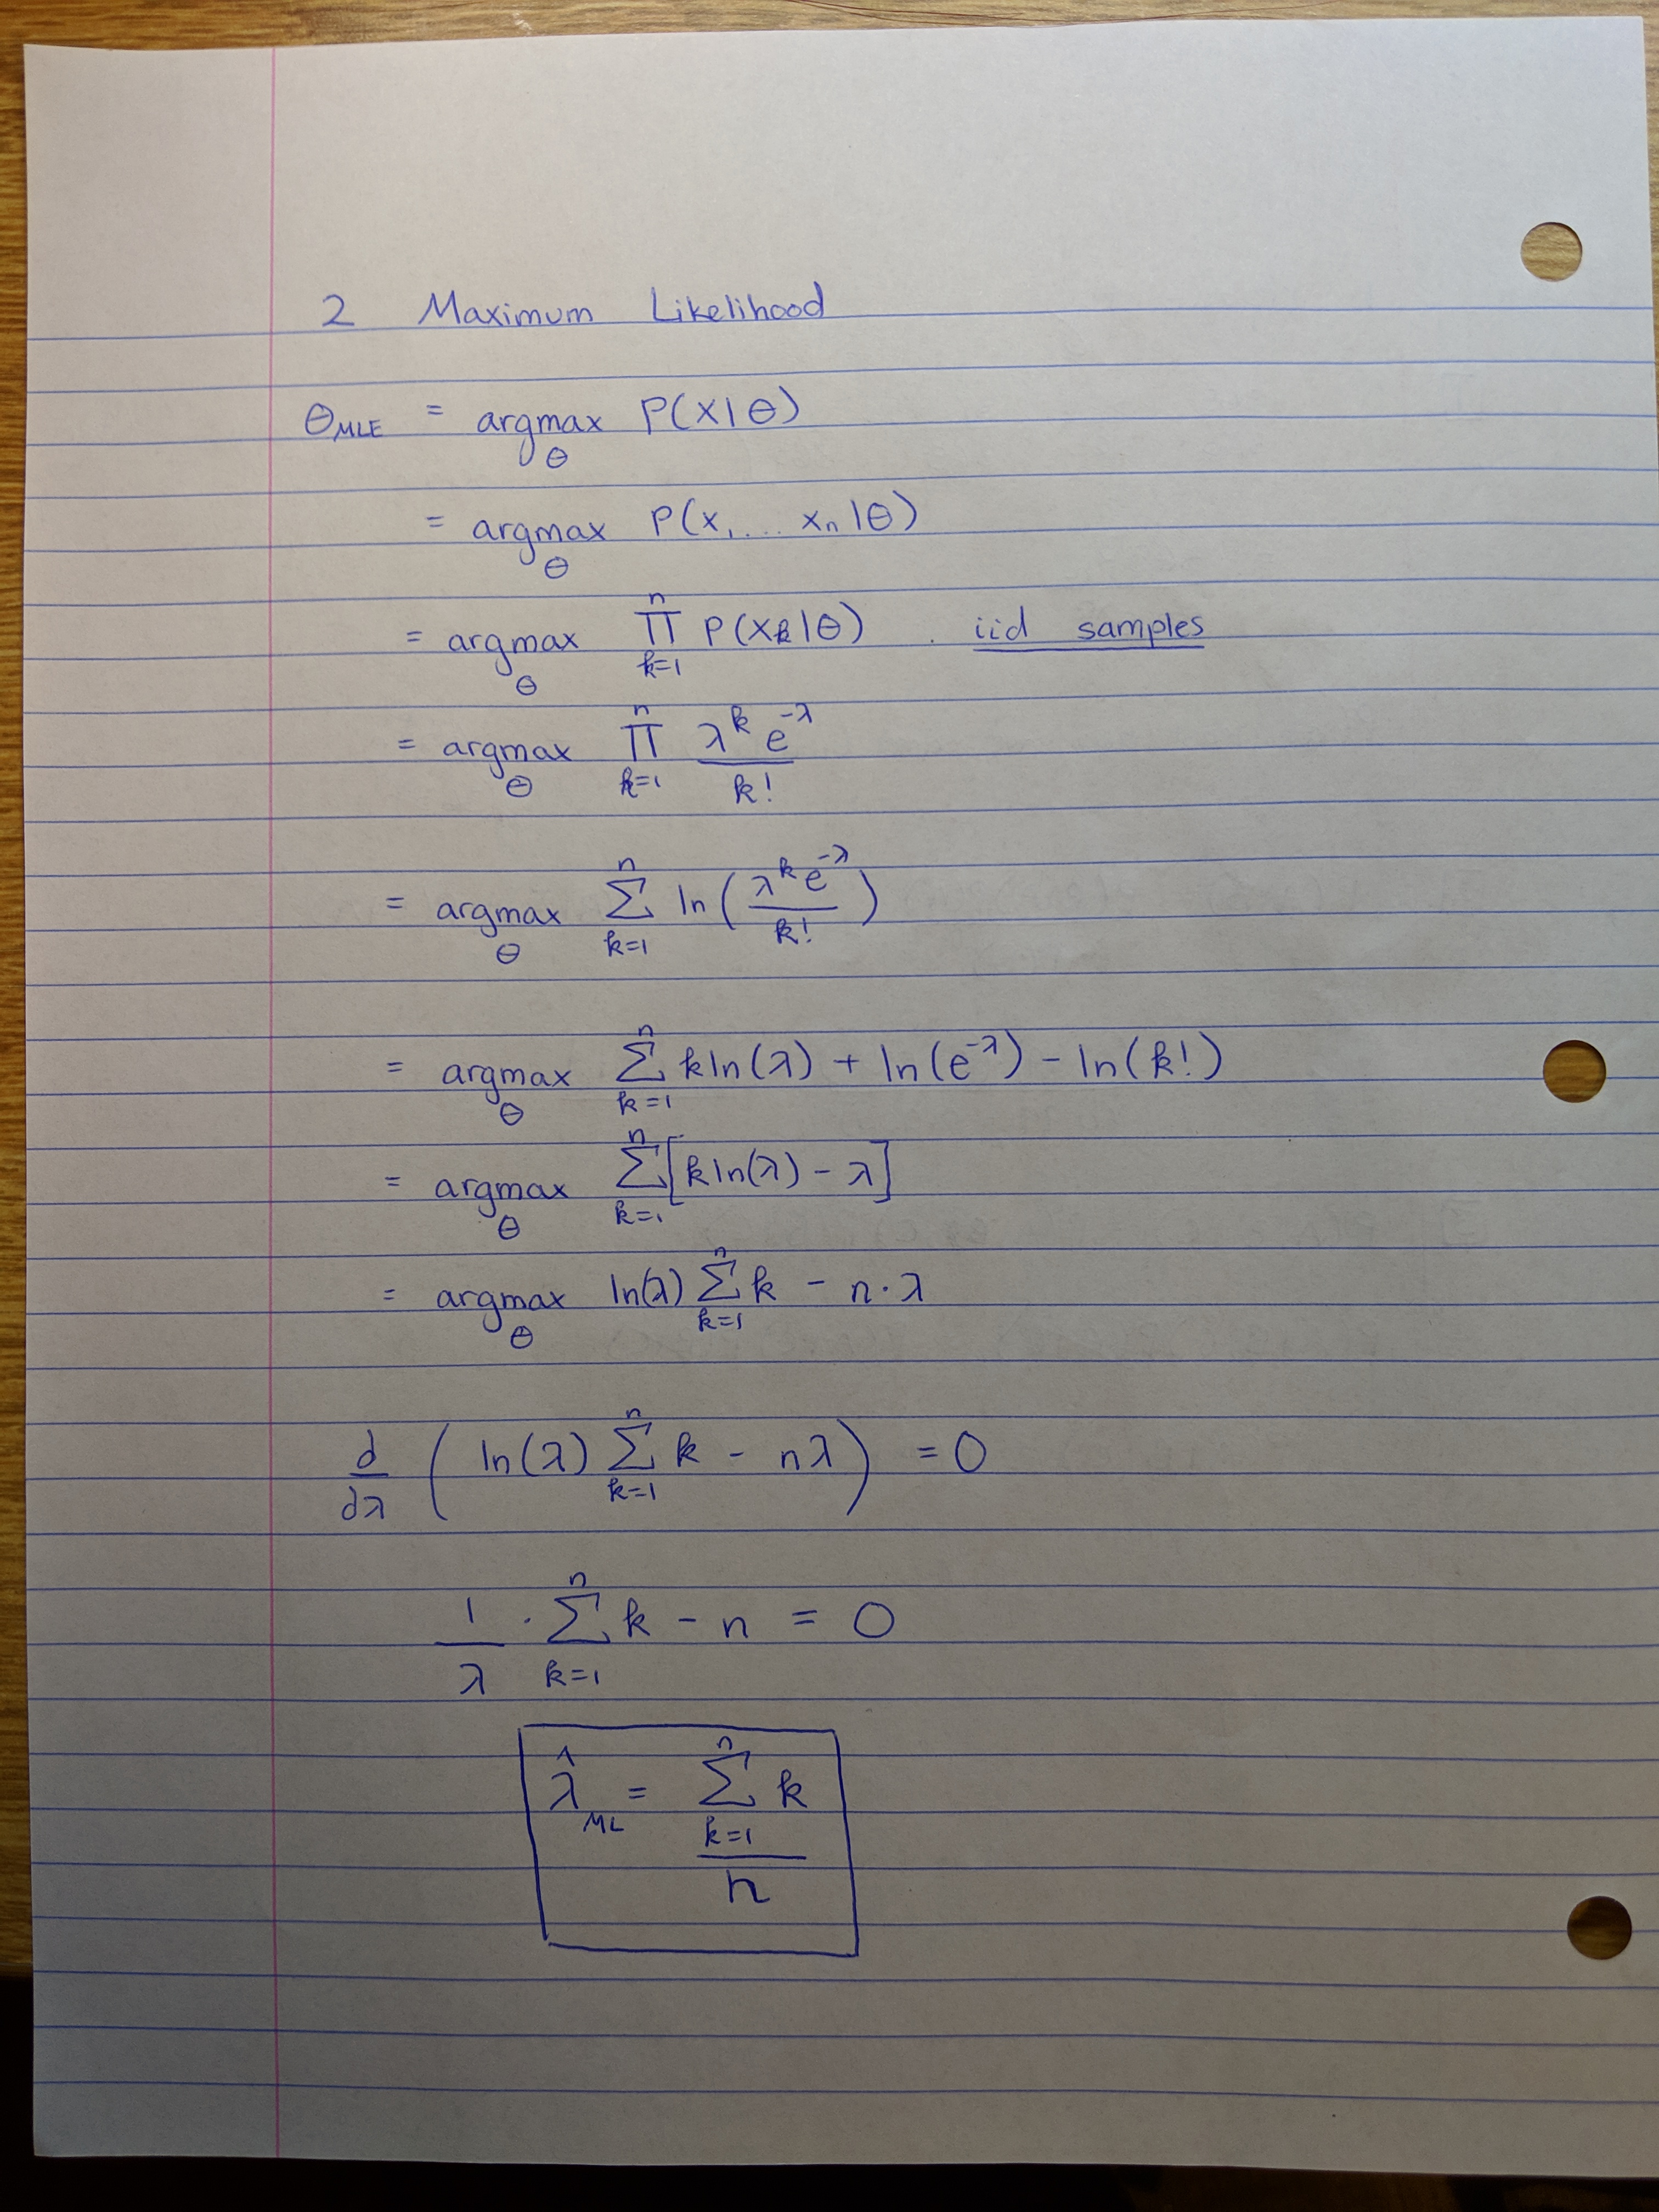 2 Maximum Likelihood
θ_MLE = argmax_θ P(X|θ)
= argmax_θ P(x₁ ... xₙ|θ)
= argmax_θ ∏_{k=1}^{n} P(x_k|θ) . iid samples
= argmax_θ ∏_{k=1}^{n} λ^k e^{-λ} / k!
= argmax_θ ∑_{k=1}^{n} ln(λ^k e^{-λ} / k!)
= argmax_θ ∑_{k=1}^{n} k ln(λ) + ln(e^{-λ}) - ln(k!)
= argmax_θ ∑_{k=1}^{n} [k ln(λ) - λ]
= argmax_θ ln(λ) ∑_{k=1}^{n} k - n · λ
d/dλ ( ln(λ) ∑_{k=1}^{n} k - nλ ) = 0
1/λ · ∑_{k=1}^{n} k - n = 0
λ̂_ML = ∑_{k=1}^{n} k / n